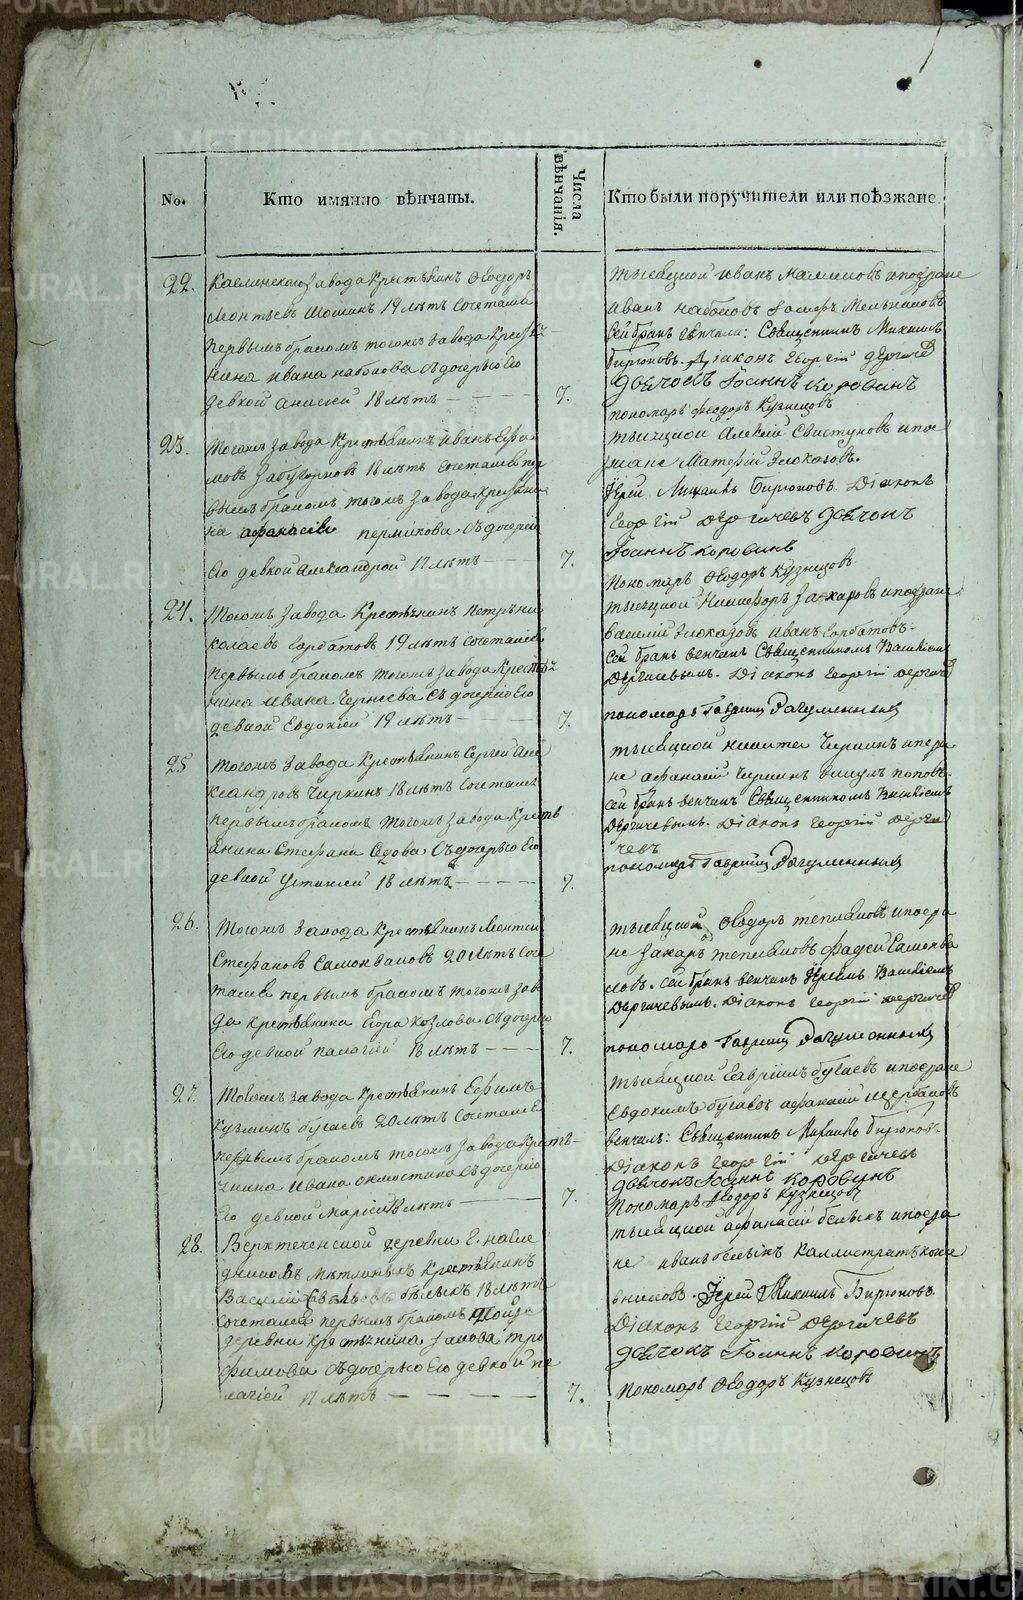 No.
Кто имянно вѣнчаны.
Числа вѣнчанія.
Кто были поручители или поѣзжане
22.
Каслинскаго завода Крестьянинъ Ѳеодоръ
Леонтьевъ 19 лѣтъ Сочетался
первымъ бракомъ тогожъ завода Кресть-
янина Ивана Набокова съ дочерью Его
девкой Анисіей 18 лѣтъ
7.
тысяцкой Иванъ поезжане
Иванъ Набоковъ
Сей бракъ венчали: Священникъ Михаилъ
Бирюковъ. Діаконъ Георгій Дергачев
Дьячокъ Іоаннъ Коровинъ
пономарь Ѳеодоръ Кузнецовъ
23.
Тогожъ завода Крестьянинъ Иванъ Ефи-
мовъ Забугорновъ 18 лѣтъ сочетался пер
вымъ бракомъ тогожъ завода Крестьяни-
на Афанасія Пермикова съ дочерію
Его девкой Александрой 17 лѣтъ
7.
тысяцкой Алексій Свистуновъ и пое
зжане Матфій Злоказовъ.
Іерей Михаилъ Бирюковъ. Діаконъ
Георгій Дергачевъ Дьячокъ
Іоаннъ Коровинъ
Пономарь Ѳеодоръ Кузнецовъ
24.
Тогожъ завода Крестьянинъ Петръ Ни
колаевъ Горбатовъ 19 лѣтъ сочетался
первымъ бракомъ тогожъ завода Кресть-
янина Ивана Чернева съ дочерію Его
девкой Евдокіей 19 лѣтъ
7.
тысяцкой Никифоръ Захаровъ и поезжане
Василій Злоказовъ Иванъ Горбатовъ.
сей бракъ венчанъ Священникомъ Василіемъ
Дергачевымъ. Діаконъ Георгій Дергачев
пономарь Гавріилъ
25
Тогожъ завода Крестьянинъ Сергей Але
ксандровъ Чиркинъ 18 лѣтъ Сочетался
первымъ бракомъ тогожъ завода Кресть
янина Стефана Седова съ дочерью Его
девкой Устиніей 18 лѣтъ
7.
тысяцкой Никита Чиркинъ и поезжа
не Афанасій Чиркинъ Поповъ.
сей бракъ венчанъ Священникомъ Василіемъ
Дергачевымъ. Діаконъ Георгій Дерга
чевъ
пономарь Гавріилъ
26.
Тогожъ завода Крестьянинъ Леонтій
Стефановъ 20 лѣтъ соче
тался первымъ бракомъ тогожъ заво
да Крестьянина Егора Козлова съ дочерью
Его девкой Палагіей 18 лѣтъ
7.
тысяцкой Ѳеодоръ Тепляковъ и поезжа
не Захаръ Тепляковъ Фадей
ковъ. сей бракъ венчанъ Іереемъ Василіемъ
Дергачевымъ. Діаконъ Георгій Дергачев
пономарь Гавріилъ
27.
Тогожъ завода Крестьянинъ Ефимъ
Кузминъ Бугаевъ 20 лѣтъ Сочетался
первымъ бракомъ тогожъ завода Кресть-
янина Ивана съ дочерію
Его девкой Маріей 18 лѣтъ
7.
тысяцкой Гавріилъ Бугаевъ и поезжане
Евдокимъ Бугаевъ Афанасій Щербаковъ
венчалъ: Священникъ Михаилъ Бирюковъ.
Діаконъ Георгій Дергачевъ
Дьячокъ Іоаннъ Коровинъ
Пономарь Ѳеодоръ Кузнецовъ
28.
Верхтеченской деревни Г. Насле
дниковъ Крестьянинъ
Василій Бѣлыхъ 18 лѣтъ
сочетался первымъ бракомъ
деревни Крестьянина Тро
фимова съ дочерью Его девкой Пе
лагіей 17 лѣтъ
7.
тысяцкой Афанасій Белыхъ и поезжа
не Иванъ Белыхъ Каллистратъ Коже
вниковъ. Іерей Михаилъ Бирюковъ
Діаконъ Георгій Дергачевъ
Дьячокъ Іоаннъ Коровинъ
Пономарь Ѳеодоръ Кузнецовъ
METRIKI.GASO-URAL.RU